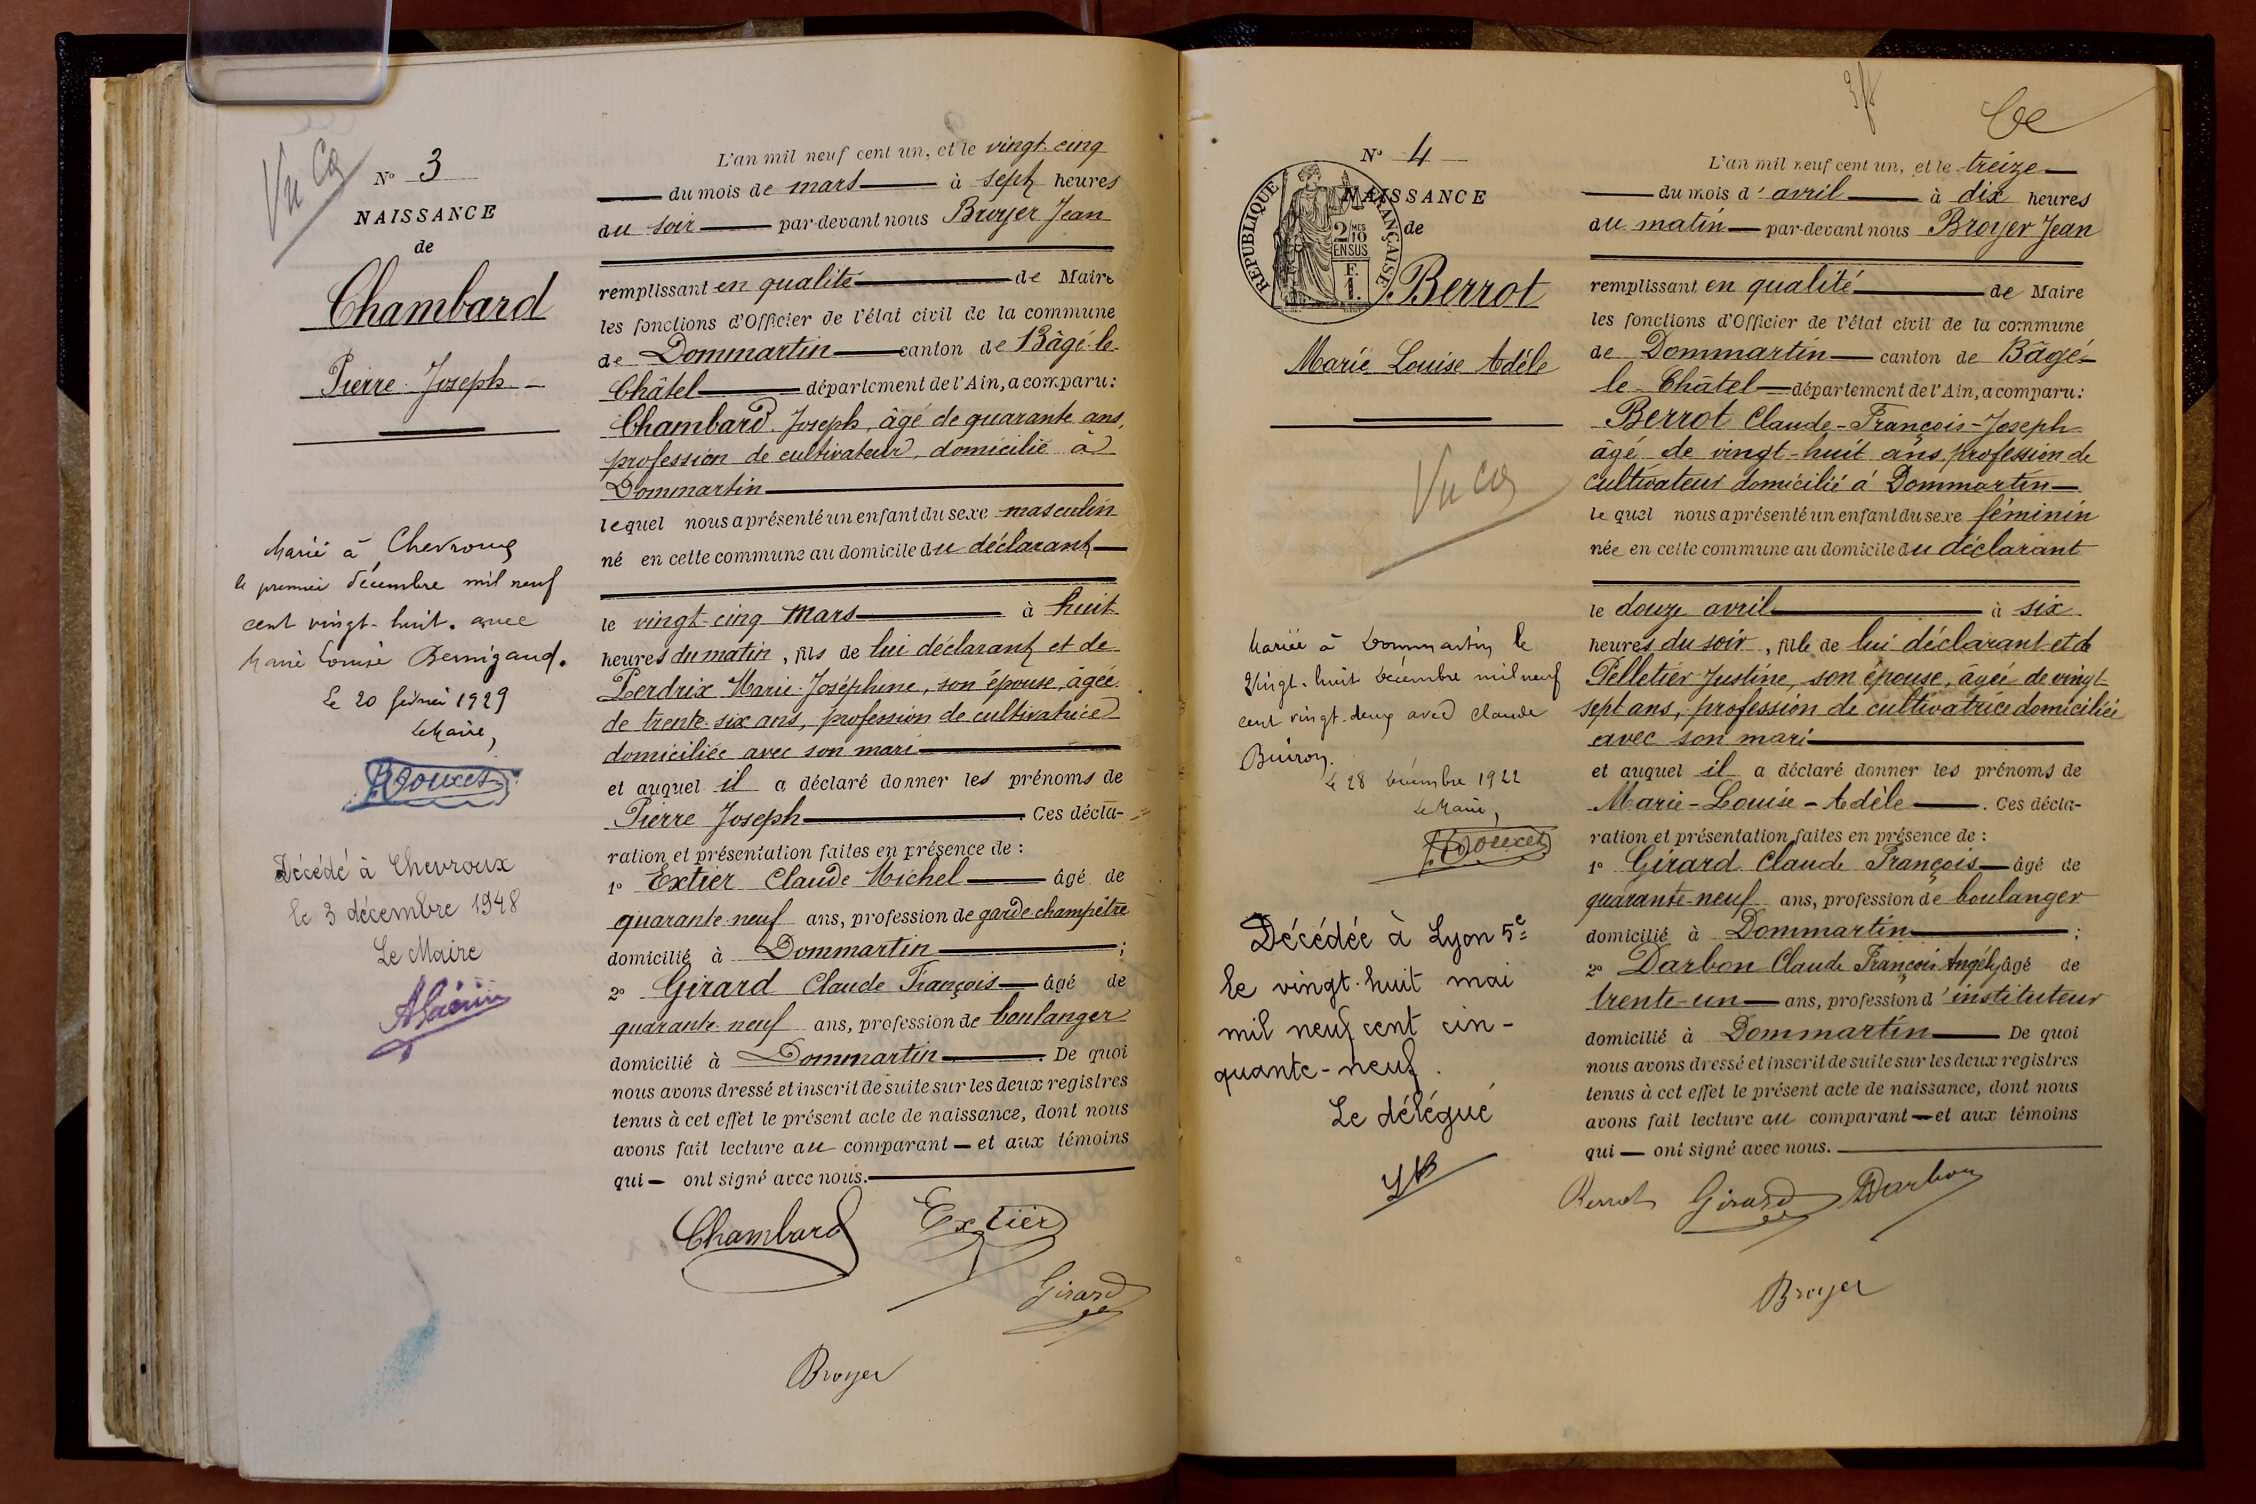 Vu Ca
N° 3
NAISSANCE
de
Chambard
Pierre Joseph
Marié à Chevroux
le premier décembre mil neuf
cent vingt-huit. avec
Marie Louise Bernigaud.
Le 20 février 1929
Le Maire,
Doucet
Décédé à Chevroux
le 3 décembre 1948
Le Maire
L'an mil neuf cent un, et le vingt-cinq
du mois de mars à sept heures
du soir par-devant nous Broyer Jean
remplissant en qualité de Maire
les fonctions d'Officier de l'état civil de la commune
de Dommartin canton de Bâgé-le-
Châtel département de l'Ain, a comparu:
Chambard Joseph, âgé de quarante ans,
profession de cultivateur, domicilié à
Dommartin
lequel nous a présenté un enfant du sexe masculin
né en cette commune au domicile du déclarant
le vingt-cinq mars à huit
heures du matin, fils de lui déclarant et de
Perdrix Marie-Joséphine, son épouse, âgée
de trente-six ans, profession de cultivatrice
domiciliée avec son mari
et auquel il a déclaré donner les prénoms de
Pierre Joseph. Ces décla-
ration et présentation faites en présence de:
1° Extier Claude Michel âgé de
quarante-neuf ans, profession de garde-champêtre
domicilié à Dommartin;
2° Girard Claude François âgé de
quarante-neuf ans, profession de boulanger
domicilié à Dommartin. De quoi
nous avons dressé et inscrit de suite sur les deux registres
tenus à cet effet le présent acte de naissance, dont nous
avons fait lecture au comparant et aux témoins
qui ont signé avec nous.
Chambard Extier
Girard
Broyer
N° 4
NAISSANCE
de
REPUBLIQUE FRANÇAISE
2 MES 10 EN SUS
F. 1.
Berrot
Marie Louise Adèle
Vu Ca
Mariée à Dommartin le
Vingt-huit décembre mil neuf
cent vingt-deux avec Claude
Buiron.
Le 28 décembre 1922
Le Maire,
Doucet
Décédée à Lyon 5e
le vingt-huit mai
mil neuf cent cin-
quante-neuf.
Le délégué
L'an mil neuf cent un, et le treize
du mois d'avril à dix heures
du matin par-devant nous Broyer Jean
remplissant en qualité de Maire
les fonctions d'Officier de l'état civil de la commune
de Dommartin canton de Bâgé-
le-Châtel département de l'Ain, a comparu:
Berrot Claude-François-Joseph
âgé de vingt-huit ans, profession de
cultivateur domicilié à Dommartin
lequel nous a présenté un enfant du sexe féminin
née en cette commune au domicile du déclarant
le douze avril à six
heures du soir, fille de lui déclarant et de
Pelletier Justine, son épouse, âgée de vingt
sept ans, profession de cultivatrice domiciliée
avec son mari
et auquel il a déclaré donner les prénoms de
Marie-Louise-Adèle. Ces décla-
ration et présentation faites en présence de:
1° Girard Claude François âgé de
quarante-neuf ans, profession de boulanger
domicilié à Dommartin;
2° Darbon Claude François Angély âgé de
trente-un ans, profession d'instituteur
domicilié à Dommartin De quoi
nous avons dressé et inscrit de suite sur les deux registres
tenus à cet effet le présent acte de naissance, dont nous
avons fait lecture au comparant et aux témoins
qui ont signé avec nous.
Berrot Girard Darbon
Broyer